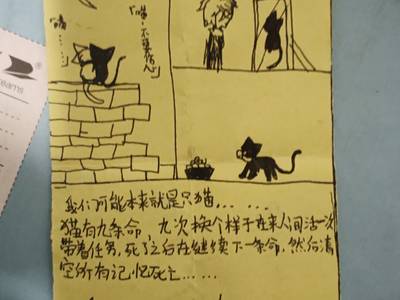 喵……
「喵，不要灰心」
我们可能本来就是只猫……
猫有九条命，九次换个样子在来人间活一次
带着任务，死了之后在继续下一条命，然后清
空所有记忆死亡……
eams